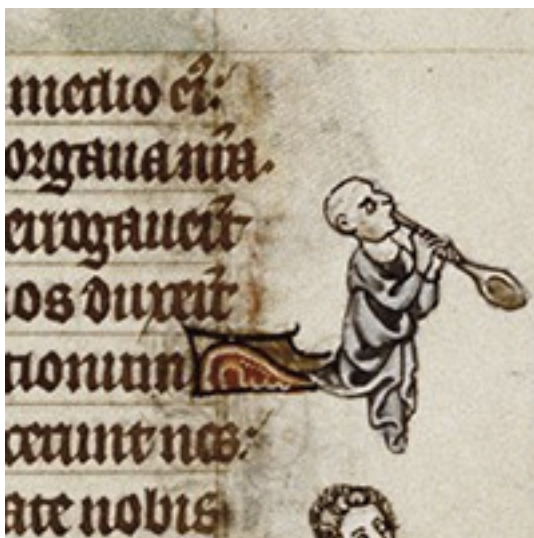 medio ei᷒:
organa nr̃a.
errogauer̃t
os duxer̃t
tionum
xerunt nos:
ate nobis